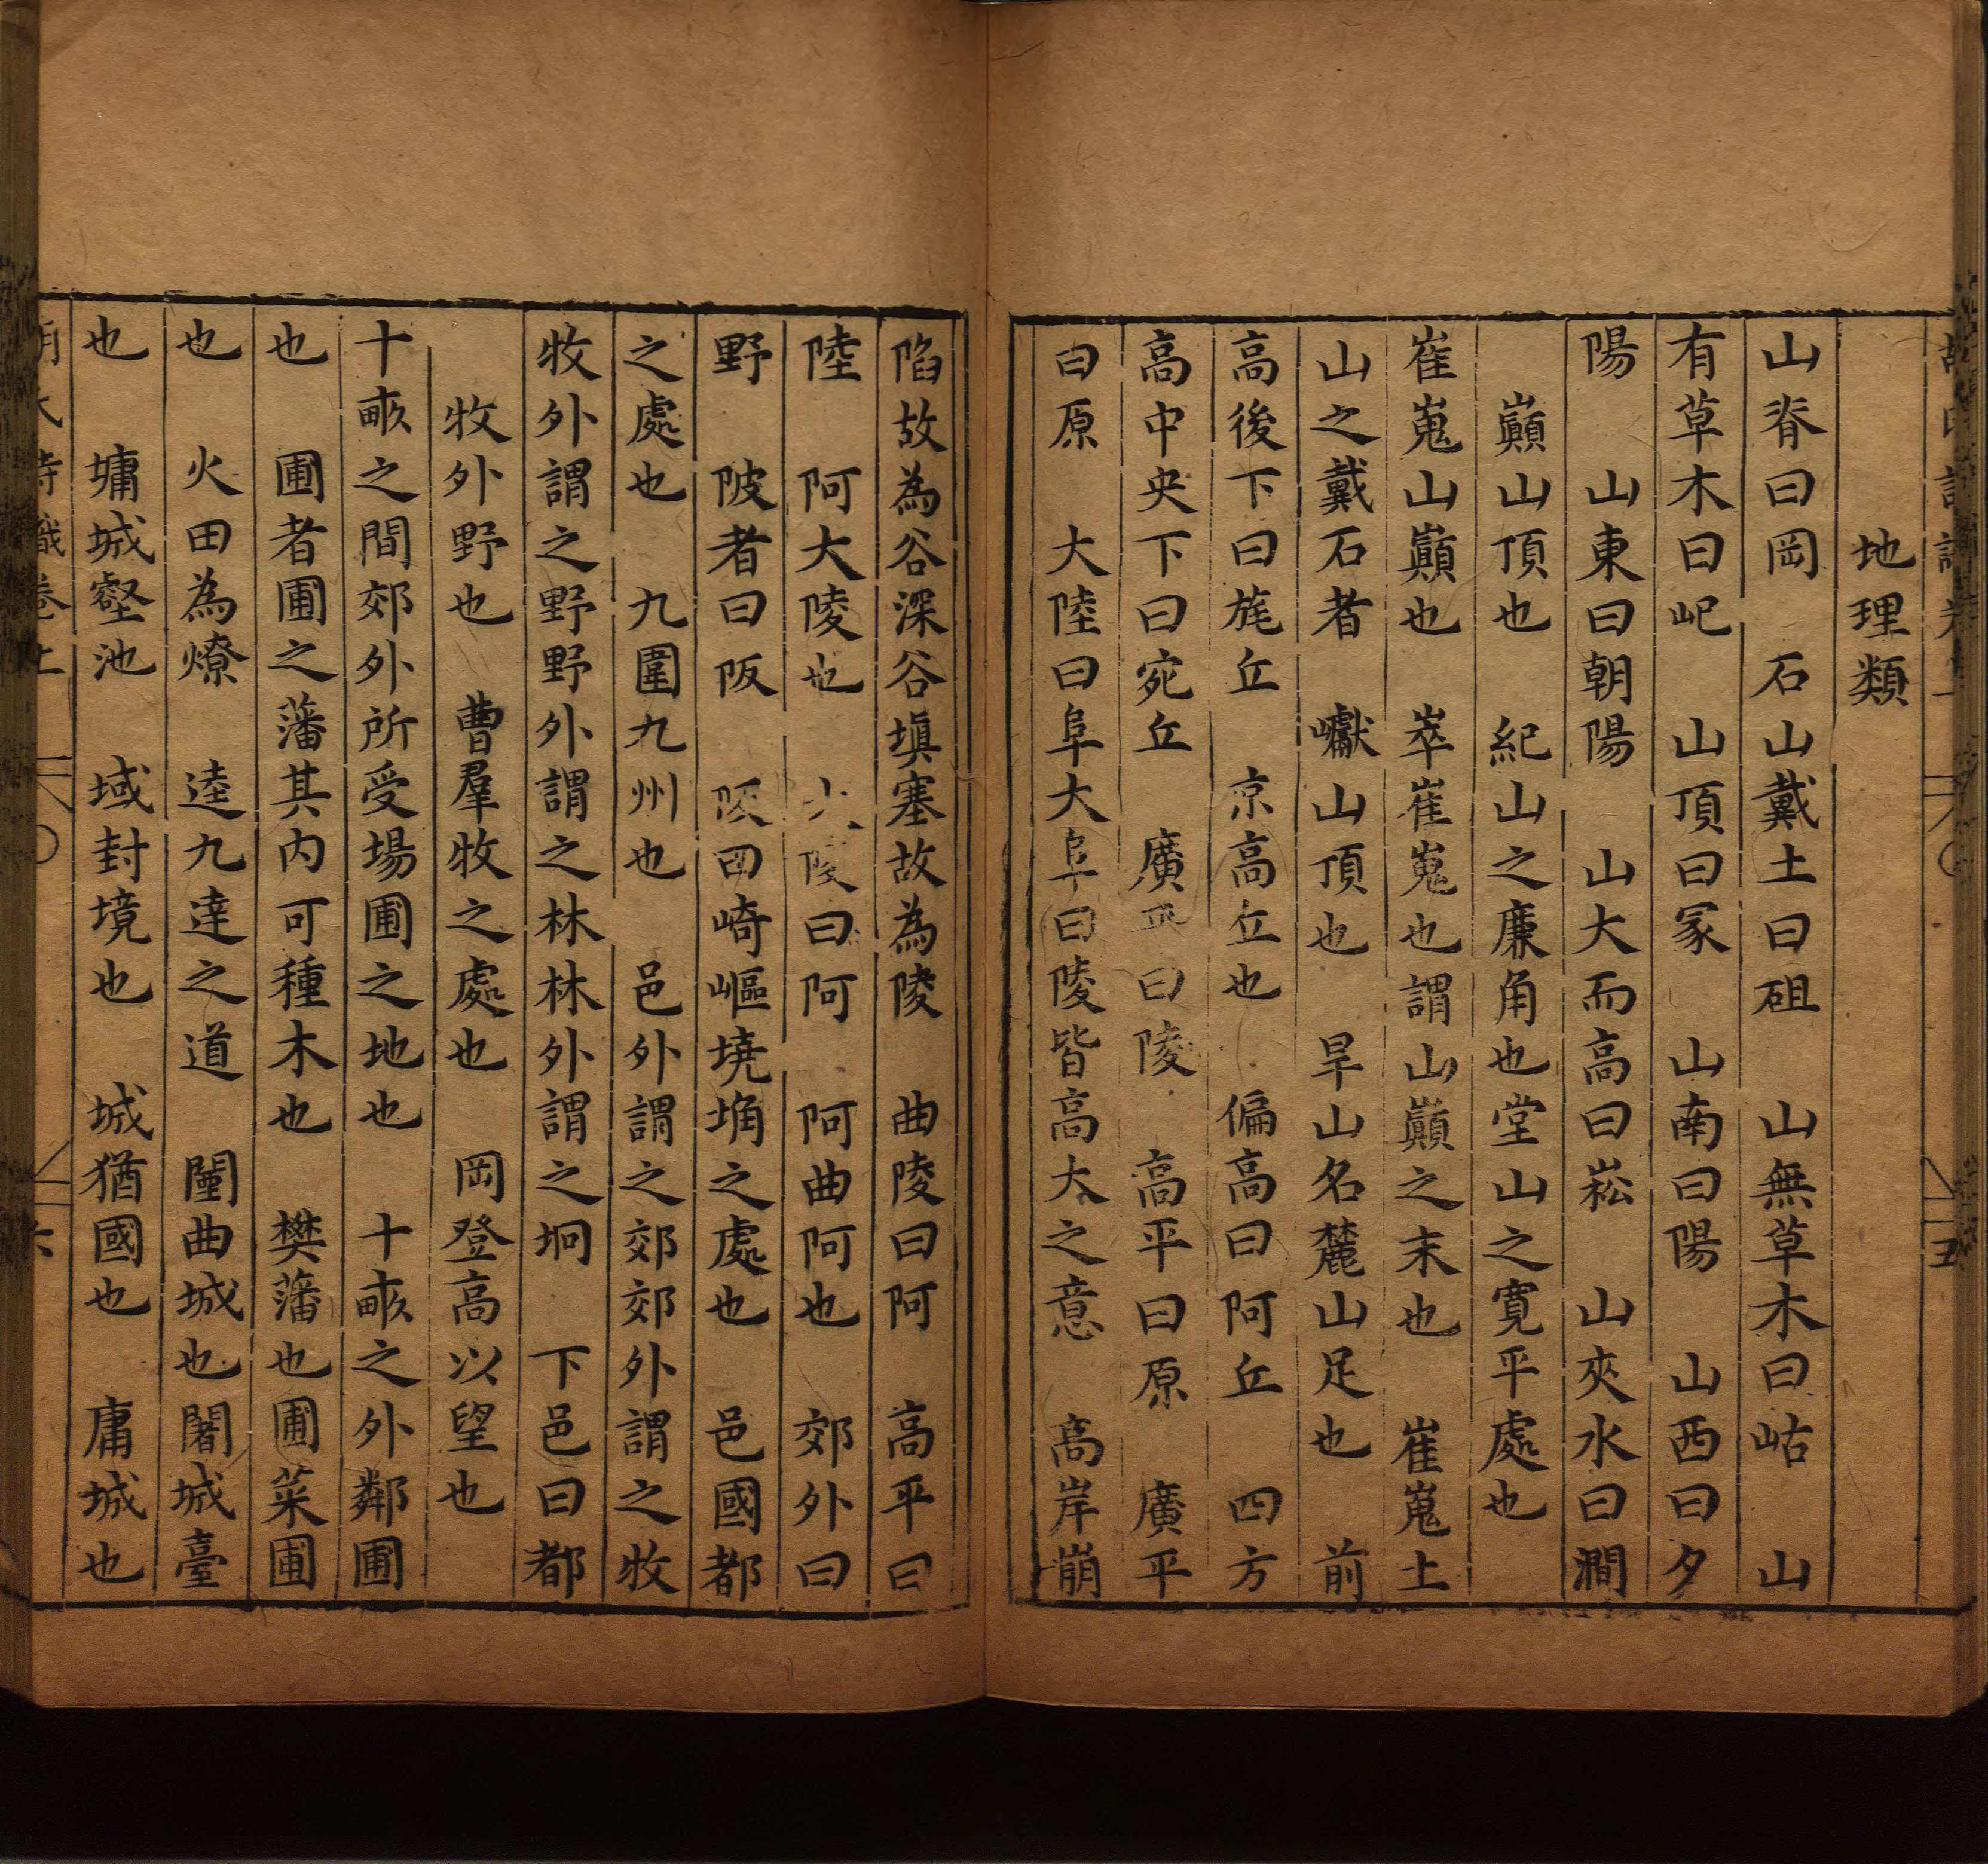 地理類
山脊曰岡　石山戴土曰砠　山無草木曰岵　山
有草木曰屺　山頂曰冢　山南曰陽　山西曰夕
陽　山東曰朝陽　山大而高曰崧　山夾水曰澗
巔山頂也　紀山之廉角也堂山之寬平處也
崔嵬山巔也　崒崔嵬也謂山巔之末也　崔嵬土
山之戴石者　巘山頂也　旱山名麓山足也　前
高後下曰旄丘　京高丘也　偏高曰阿丘　四方
高中央下曰宛丘　廣平曰陵　高平曰原　廣平
曰原　大陸曰阜大阜曰陵皆高大之意　高岸崩
陷故為谷深谷塡塞故為陵　曲陵曰阿　高平曰
陸　阿大陵也　大陵曰阿　阿曲阿也　郊外曰
野　陂者曰阪　阪田崎嶇墝埆之處也　邑國都
之處也　九圍九州也　邑外謂之郊郊外謂之牧
牧外謂之野野外謂之林林外謂之坰　下邑曰都
牧外野也　曹羣牧之處也　岡登高以望也
十畞之間郊外所受場圃之地也　十畞之外鄰圃
也　圃者圃之藩其內可種木也　樊藩也圃菜圃
也　火田為燎　逵九達之道　闉曲城也闍城臺
也　墉城壑池　域封境也　城猶國也　庸城也
詩識卷上　六